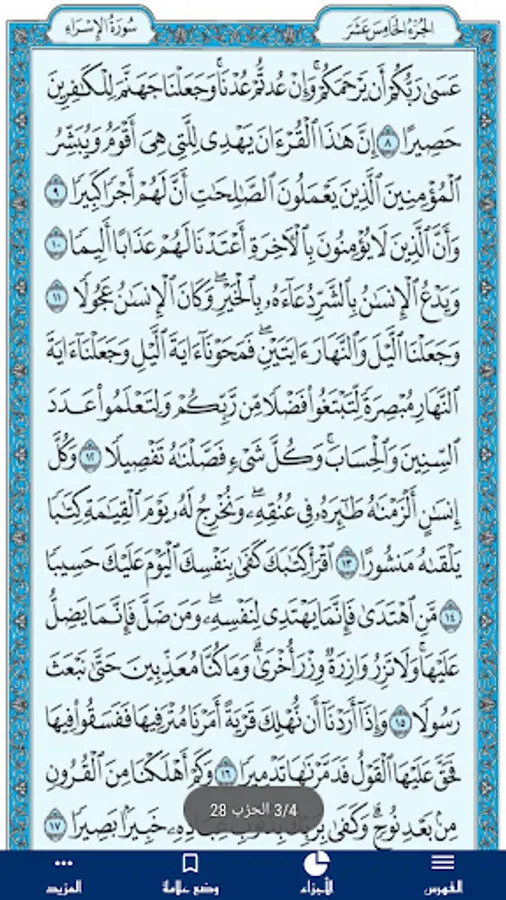 الجُزْءُ الخَامِسَ عَشَرَ
سُورَةُ الإِسْرَاءِ
عَسَىٰ رَبُّكُمْ أَن يَرْحَمَكُمْ ۚ وَإِنْ عُدتُّمْ عُدْنَا ۘ وَجَعَلْنَا جَهَنَّمَ لِلْكَٰفِرِينَ
حَصِيرًا ٨ إِنَّ هَٰذَا ٱلْقُرْءَانَ يَهْدِى لِلَّتِى هِىَ أَقْوَمُ وَيُبَشِّرُ
ٱلْمُؤْمِنِينَ ٱلَّذِينَ يَعْمَلُونَ ٱلصَّٰلِحَٰتِ أَنَّ لَهُمْ أَجْرًا كَبِيرًا ٩
وَأَنَّ ٱلَّذِينَ لَا يُؤْمِنُونَ بِٱلْءَاخِرَةِ أَعْتَدْنَا لَهُمْ عَذَابًا أَلِيمًا ١٠
وَيَدْعُ ٱلْإِنسَٰنُ بِٱلشَّرِّ دُعَآءَهُۥ بِٱلْخَيْرِ ۖ وَكَانَ ٱلْإِنسَٰنُ عَجُولًا ١١
وَجَعَلْنَا ٱلَّيْلَ وَٱلنَّهَارَ ءَايَتَيْنِ ۖ فَمَحَوْنَآ ءَايَةَ ٱلَّيْلِ وَجَعَلْنَآ ءَايَةَ
ٱلنَّهَارِ مُبْصِرَةً لِّتَبْتَغُوا۟ فَضْلًا مِّن رَّبِّكُمْ وَلِتَعْلَمُوا۟ عَدَدَ
ٱلسِّنِينَ وَٱلْحِسَابَ ۚ وَكُلَّ شَىْءٍ فَصَّلْنَٰهُ تَفْصِيلًا ١٢ وَكُلَّ
إِنسَٰنٍ أَلْزَمْنَٰهُ طَٰٓئِرَهُۥ فِى عُنُقِهِۦ ۖ وَنُخْرِجُ لَهُۥ يَوْمَ ٱلْقِيَٰمَةِ كِتَٰبًا
يَلْقَىٰهُ مَنشُورًا ١٣ ٱقْرَأْ كِتَٰبَكَ كَفَىٰ بِنَفْسِكَ ٱلْيَوْمَ عَلَيْكَ حَسِيبًا
١٤ مَّنِ ٱهْتَدَىٰ فَإِنَّمَا يَهْتَدِى لِنَفْسِهِۦ ۖ وَمَن ضَلَّ فَإِنَّمَا يَضِلُّ
عَلَيْهَا ۚ وَلَا تَزِرُ وَازِرَةٌ وِزْرَ أُخْرَىٰ ۗ وَمَا كُنَّا مُعَذِّبِينَ حَتَّىٰ نَبْعَثَ
رَسُولًا ١٥ وَإِذَآ أَرَدْنَآ أَن نُّهْلِكَ قَرْيَةً أَمَرْنَا مُتْرَفِيهَا فَفَسَقُوا۟ فِيهَا
فَحَقَّ عَلَيْهَا ٱلْقَوْلُ فَدَمَّرْنَٰهَا تَدْمِيرًا ١٦ وَكَمْ أَهْلَكْنَا مِنَ ٱلْقُرُونِ
مِنۢ بَعْدِ نُوحٍ ۗ وَكَفَىٰ بِرَبِّكَ بِذُنُوبِ عِبَادِهِۦ خَبِيرًۢا بَصِيرًا ١٧
3/4 الحزب 28
الفهرس
الأجزاء
وضع علامة
المزيد